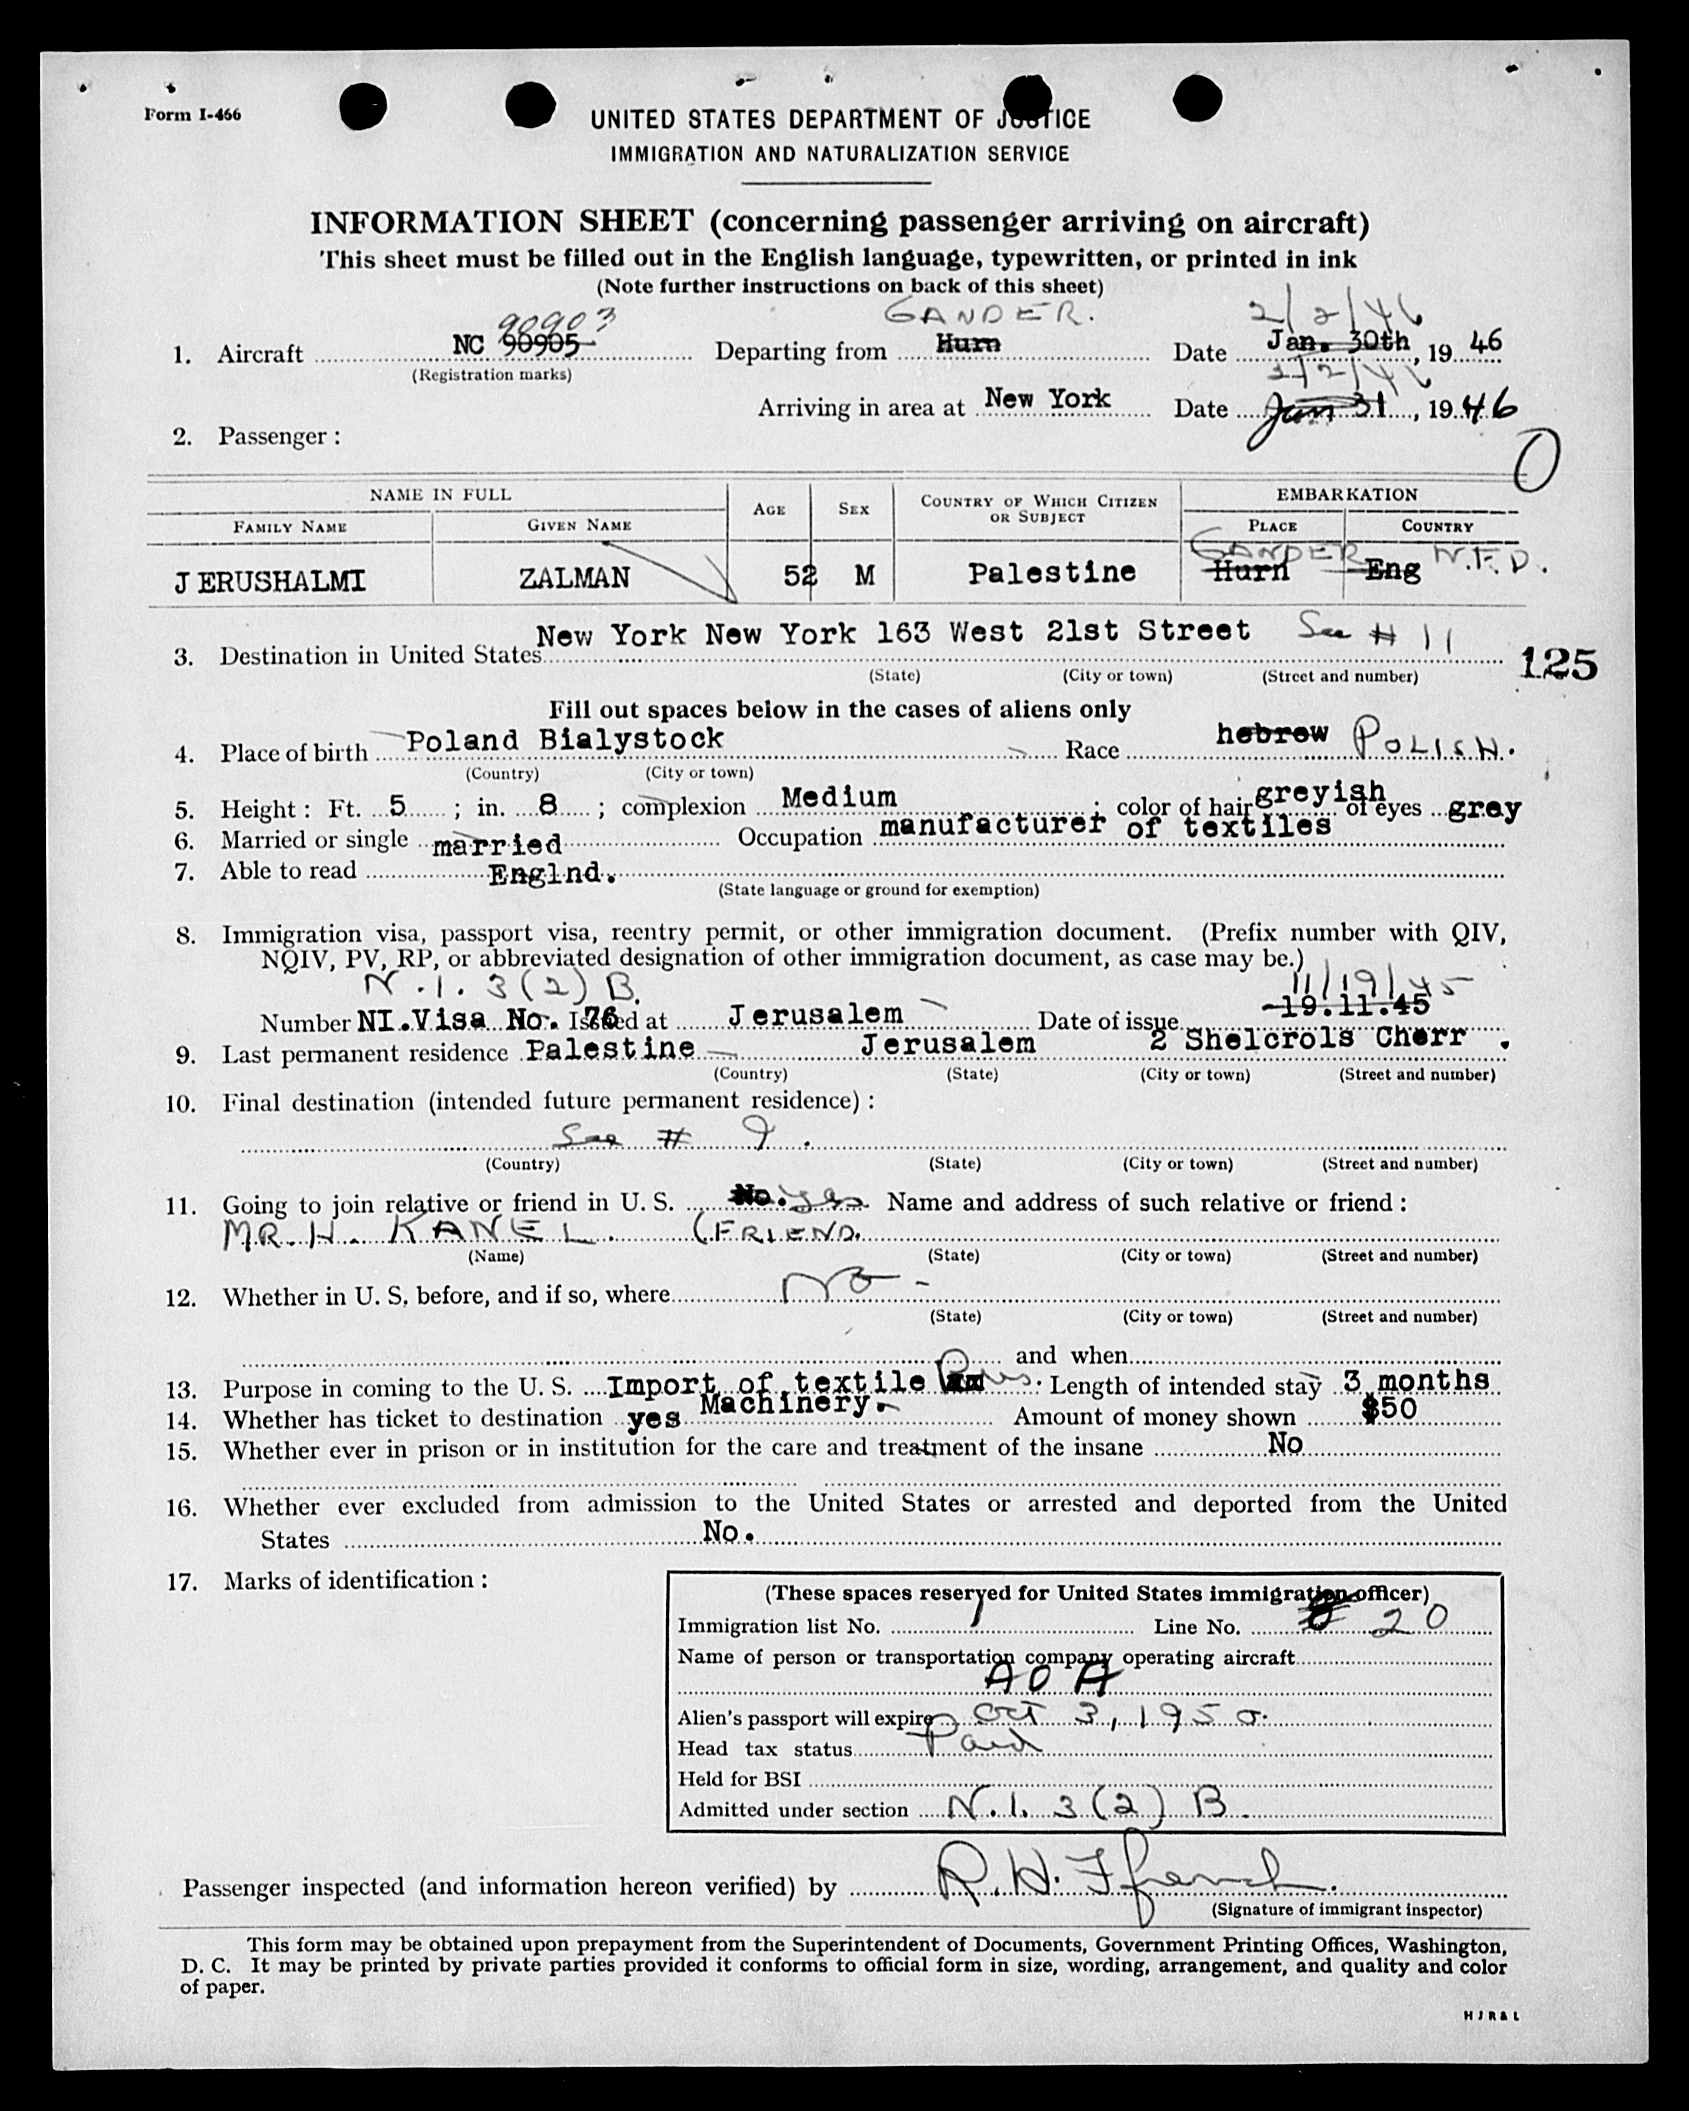 Form I-466
UNITED STATES DEPARTMENT OF JUSTICE
IMMIGRATION AND NATURALIZATION SERVICE
INFORMATION SHEET (concerning passenger arriving on aircraft)
This sheet must be filled out in the English language, typewritten, or printed in ink
(Note further instructions on back of this sheet)
90903 GANDER. 2/2/46
1. Aircraft NC 90905 Departing from Hurn Date Jan. 30th, 1946
(Registration marks) 2/2/46
Arriving in area at New York Date Jan 31, 1946
2. Passenger: O
NAME IN FULL AGE SEX COUNTRY OF WHICH CITIZEN OR SUBJECT EMBARKATION
FAMILY NAME GIVEN NAME PLACE COUNTRY
GANDER N.F.D.
JERUSHALMI ZALMAN 52 M Palestine Hurn Eng
3. Destination in United States New York New York 163 West 21st Street See # 11
(State) (City or town) (Street and number) 125
Fill out spaces below in the cases of aliens only
4. Place of birth Poland Bialystock Race hebrew POLISH.
(Country) (City or town)
5. Height: Ft. 5; in. 8; complexion Medium; color of hair greyish of eyes grey
6. Married or single married Occupation manufacturer of textiles
7. Able to read Englnd.
(State language or ground for exemption)
8. Immigration visa, passport visa, reentry permit, or other immigration document. (Prefix number with QIV,
NQIV, PV, RP, or abbreviated designation of other immigration document, as case may be.)
N.I. 3(2) B. 11/19/45
Number NI.Visa No. 76 Issued at Jerusalem Date of issue 19.11.45
9. Last permanent residence Palestine Jerusalem 2 Shelcrols Cherr.
(Country) (State) (City or town) (Street and number)
10. Final destination (intended future permanent residence):
See # 9.
(Country) (State) (City or town) (Street and number)
11. Going to join relative or friend in U. S. No. Yes Name and address of such relative or friend:
MR. H. KANEL. (FRIEND.
(Name) (State) (City or town) (Street and number)
12. Whether in U. S. before, and if so, where No -
(State) (City or town) (Street and number)
and when
13. Purpose in coming to the U. S. Import of textile Bus. Length of intended stay 3 months
Machinery.
14. Whether has ticket to destination yes Amount of money shown $50
15. Whether ever in prison or in institution for the care and treatment of the insane No
16. Whether ever excluded from admission to the United States or arrested and deported from the United
States No.
17. Marks of identification:
(These spaces reserved for United States immigration officer)
Immigration list No. 1 Line No. 20
Name of person or transportation company operating aircraft
AOA
Alien's passport will expire Oct 3, 1950.
Head tax status Paid
Held for BSI
Admitted under section N.I. 3(2) B.
Passenger inspected (and information hereon verified) by R. H. Ffrench.
(Signature of immigrant inspector)
This form may be obtained upon prepayment from the Superintendent of Documents, Government Printing Offices, Washington,
D. C. It may be printed by private parties provided it conforms to official form in size, wording, arrangement, and quality and color
of paper.
HJR&L